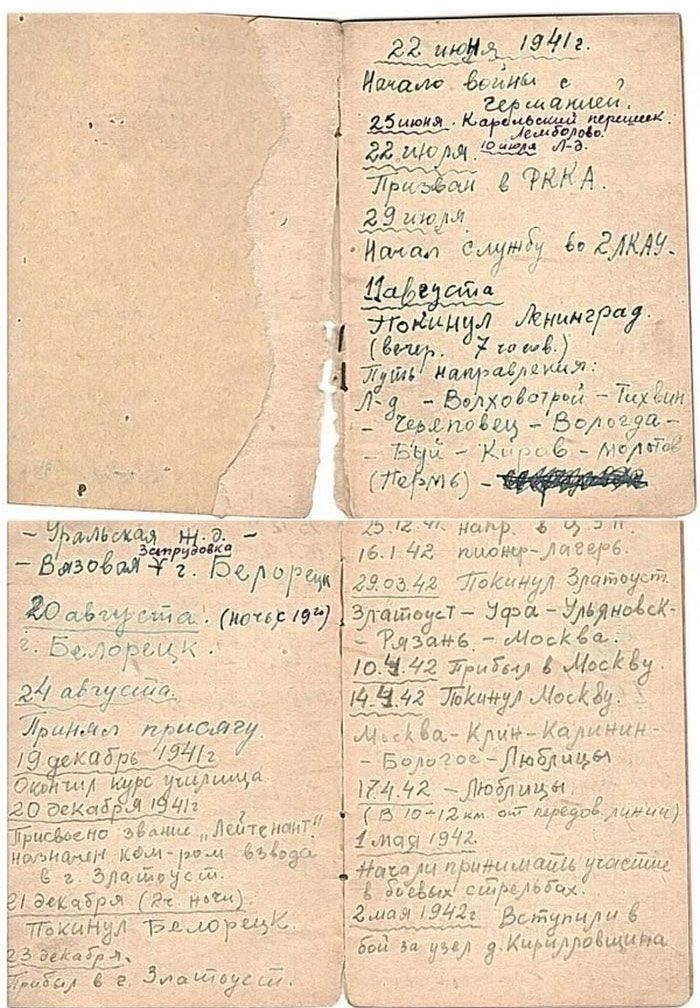 22 июня 1941г.
Начало войны с
Германией.
25 июня. Карельский перешеек.
Лемболово.
22 июля. 10 июля Л-д.
Призван в РККА.
29 июля
Начал службу во 2ЛКАУ-
11 августа
Покинул Ленинград.
(вечер. 7 часов.)
Путь направления:
Л-д - Волховстрой - Тихвин
- Череповец - Вологда -
- Буй - Киров - Молотов
(Пермь) -
- Уральская ж.д. -
Запрудовка
- Вязовая г. Белорецк
20 августа. (ночь с 19го)
г. Белорецк.
24 августа.
Принял присягу.
19 декабрь 1941г
Окончил курс училища.
20 декабря 1941г
Присвоено звание „Лейтенант"
назначен ком-ром взвода
в г. Златоуст.
21 декабря (2ч. ночи).
Покинул Белорецк.
23 декабря.
Прибыл в г. Златоуст.
25.12.41. напр. в
16.1.42 пионер-лагерь.
29.03.42 Покинул Златоуст.
Златоуст - Уфа - Ульяновск-
- Рязань - Москва.
10.4.42 Прибыл в Москву.
14.4.42 Покинул Москву.
Москва - Клин - Калинин -
- Бологое - Люблицы
17.4.42 - Люблицы.
(В 10-12 км. от передов. линии)
1 мая 1942.
Начали принимать участие
в боевых стрельбах.
2 мая 1942г. Вступили в
бой за узел д. Кирилловщина